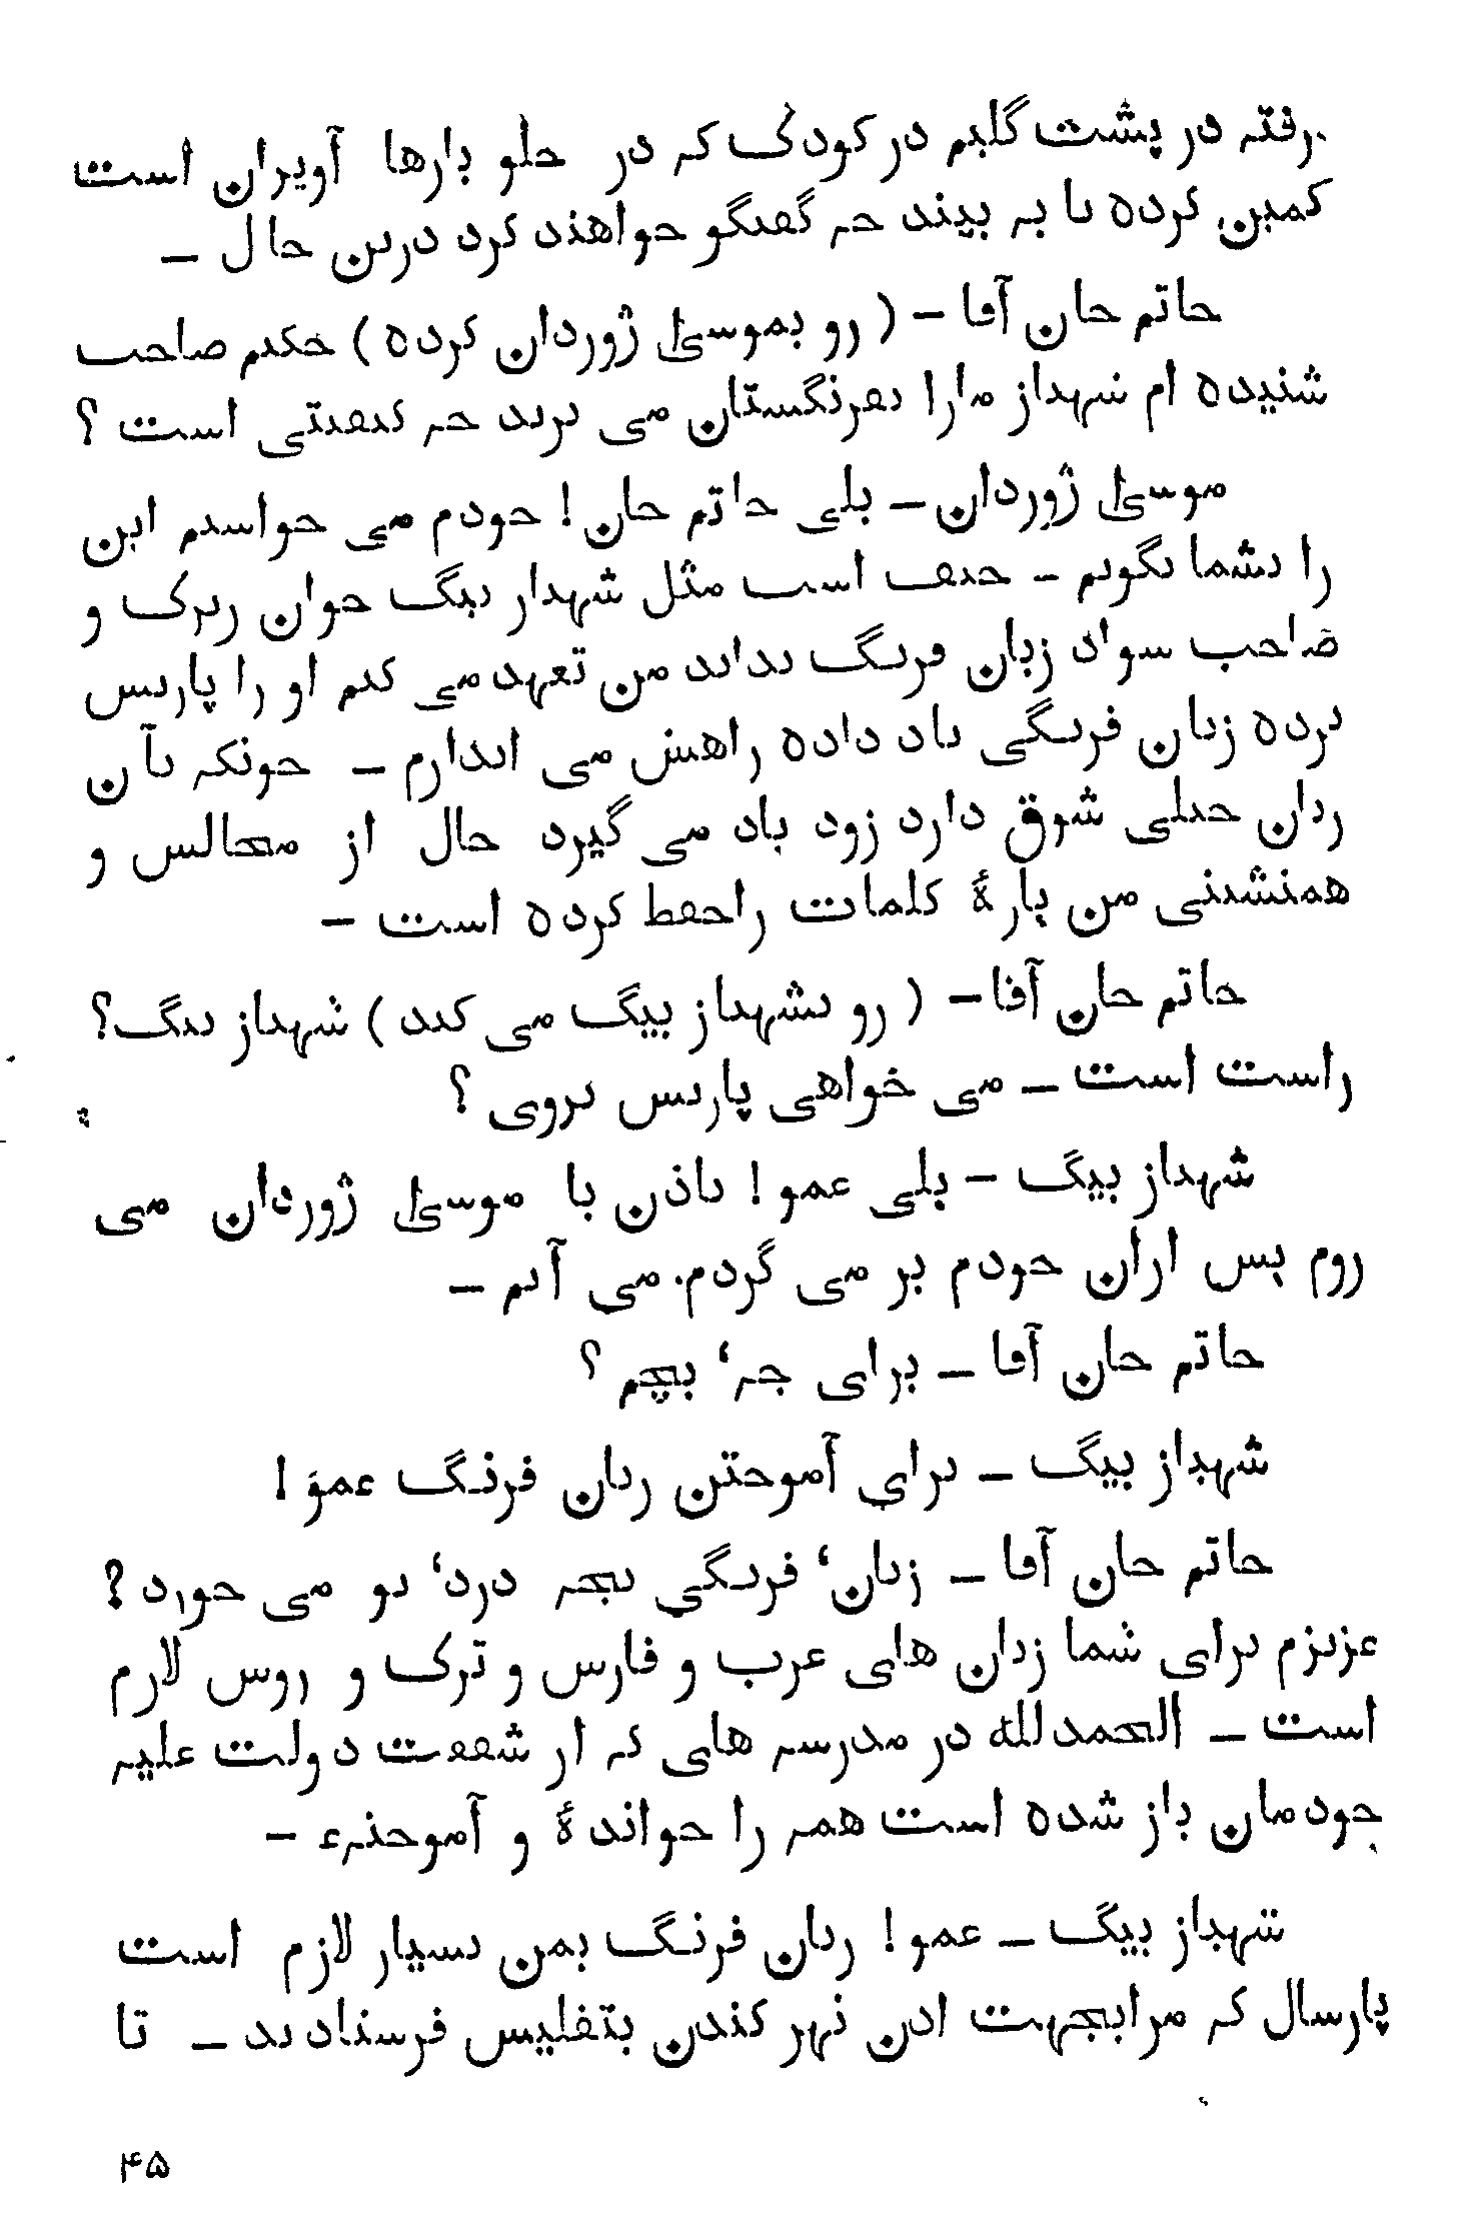 رفته در پشت گلیم در کودک که در جلو بارها آویزان است
کمین کرده تا به بیند چه گفتگو خواهند کرد درین حال –
حاتم خان آقا – ( رو بموسیٰ ژوردان کرده ) حکیم صاحب
شنیده ام شهباز مارا بفرنگستان می برید چه کیفیتی است ؟
موسیٰ ژوردان – بلی حاتم خان ! خودم می خواستم این
را بشما بگویم – حیف است مثل شهباز بیگ جوان زیرک و
صاحب سواد زبان فرنگ نداند من تعهد می کنم او را پاریس
برده زبان فرنگی یاد داده راهش می اندازم – چونکه بآن
زبان خیلی شوق دارد زود یاد می گیرد حال از مجالس و
همنشینی من پارهٔ کلمات راحفظ کرده است –
حاتم خان آقا – ( رو بشهباز بیگ می کند ) شهباز بیگ ؟
راست است – می خواهی پاریس بروی ؟
شهباز بیگ – بلی عمو ! باذن با موسیٰ ژوردان می
روم پس ازان خودم بر می گردم. می آیم –
حاتم خان آقا – برای چه‘ بچم ؟
شهباز بیگ – برای آموختن زبان فرنگ عمو !
حاتم خان آقا – زبان‘ فرنگی بچه درد‘ تو می خورد ؟
عزیزم برای شما زبان های عرب و فارس و ترک و روس لازم
است – الحمدلله در مدرسه های که از شفقت دولت علیه
خودمان باز شده است همه را خواندهٔ و آموختهء –
شهباز بیگ – عمو ! زبان فرنگ بمن بسیار لازم است
پارسال که مرابجهت ادن نهر کندن بتفلیس فرستادید – تا
۴۵